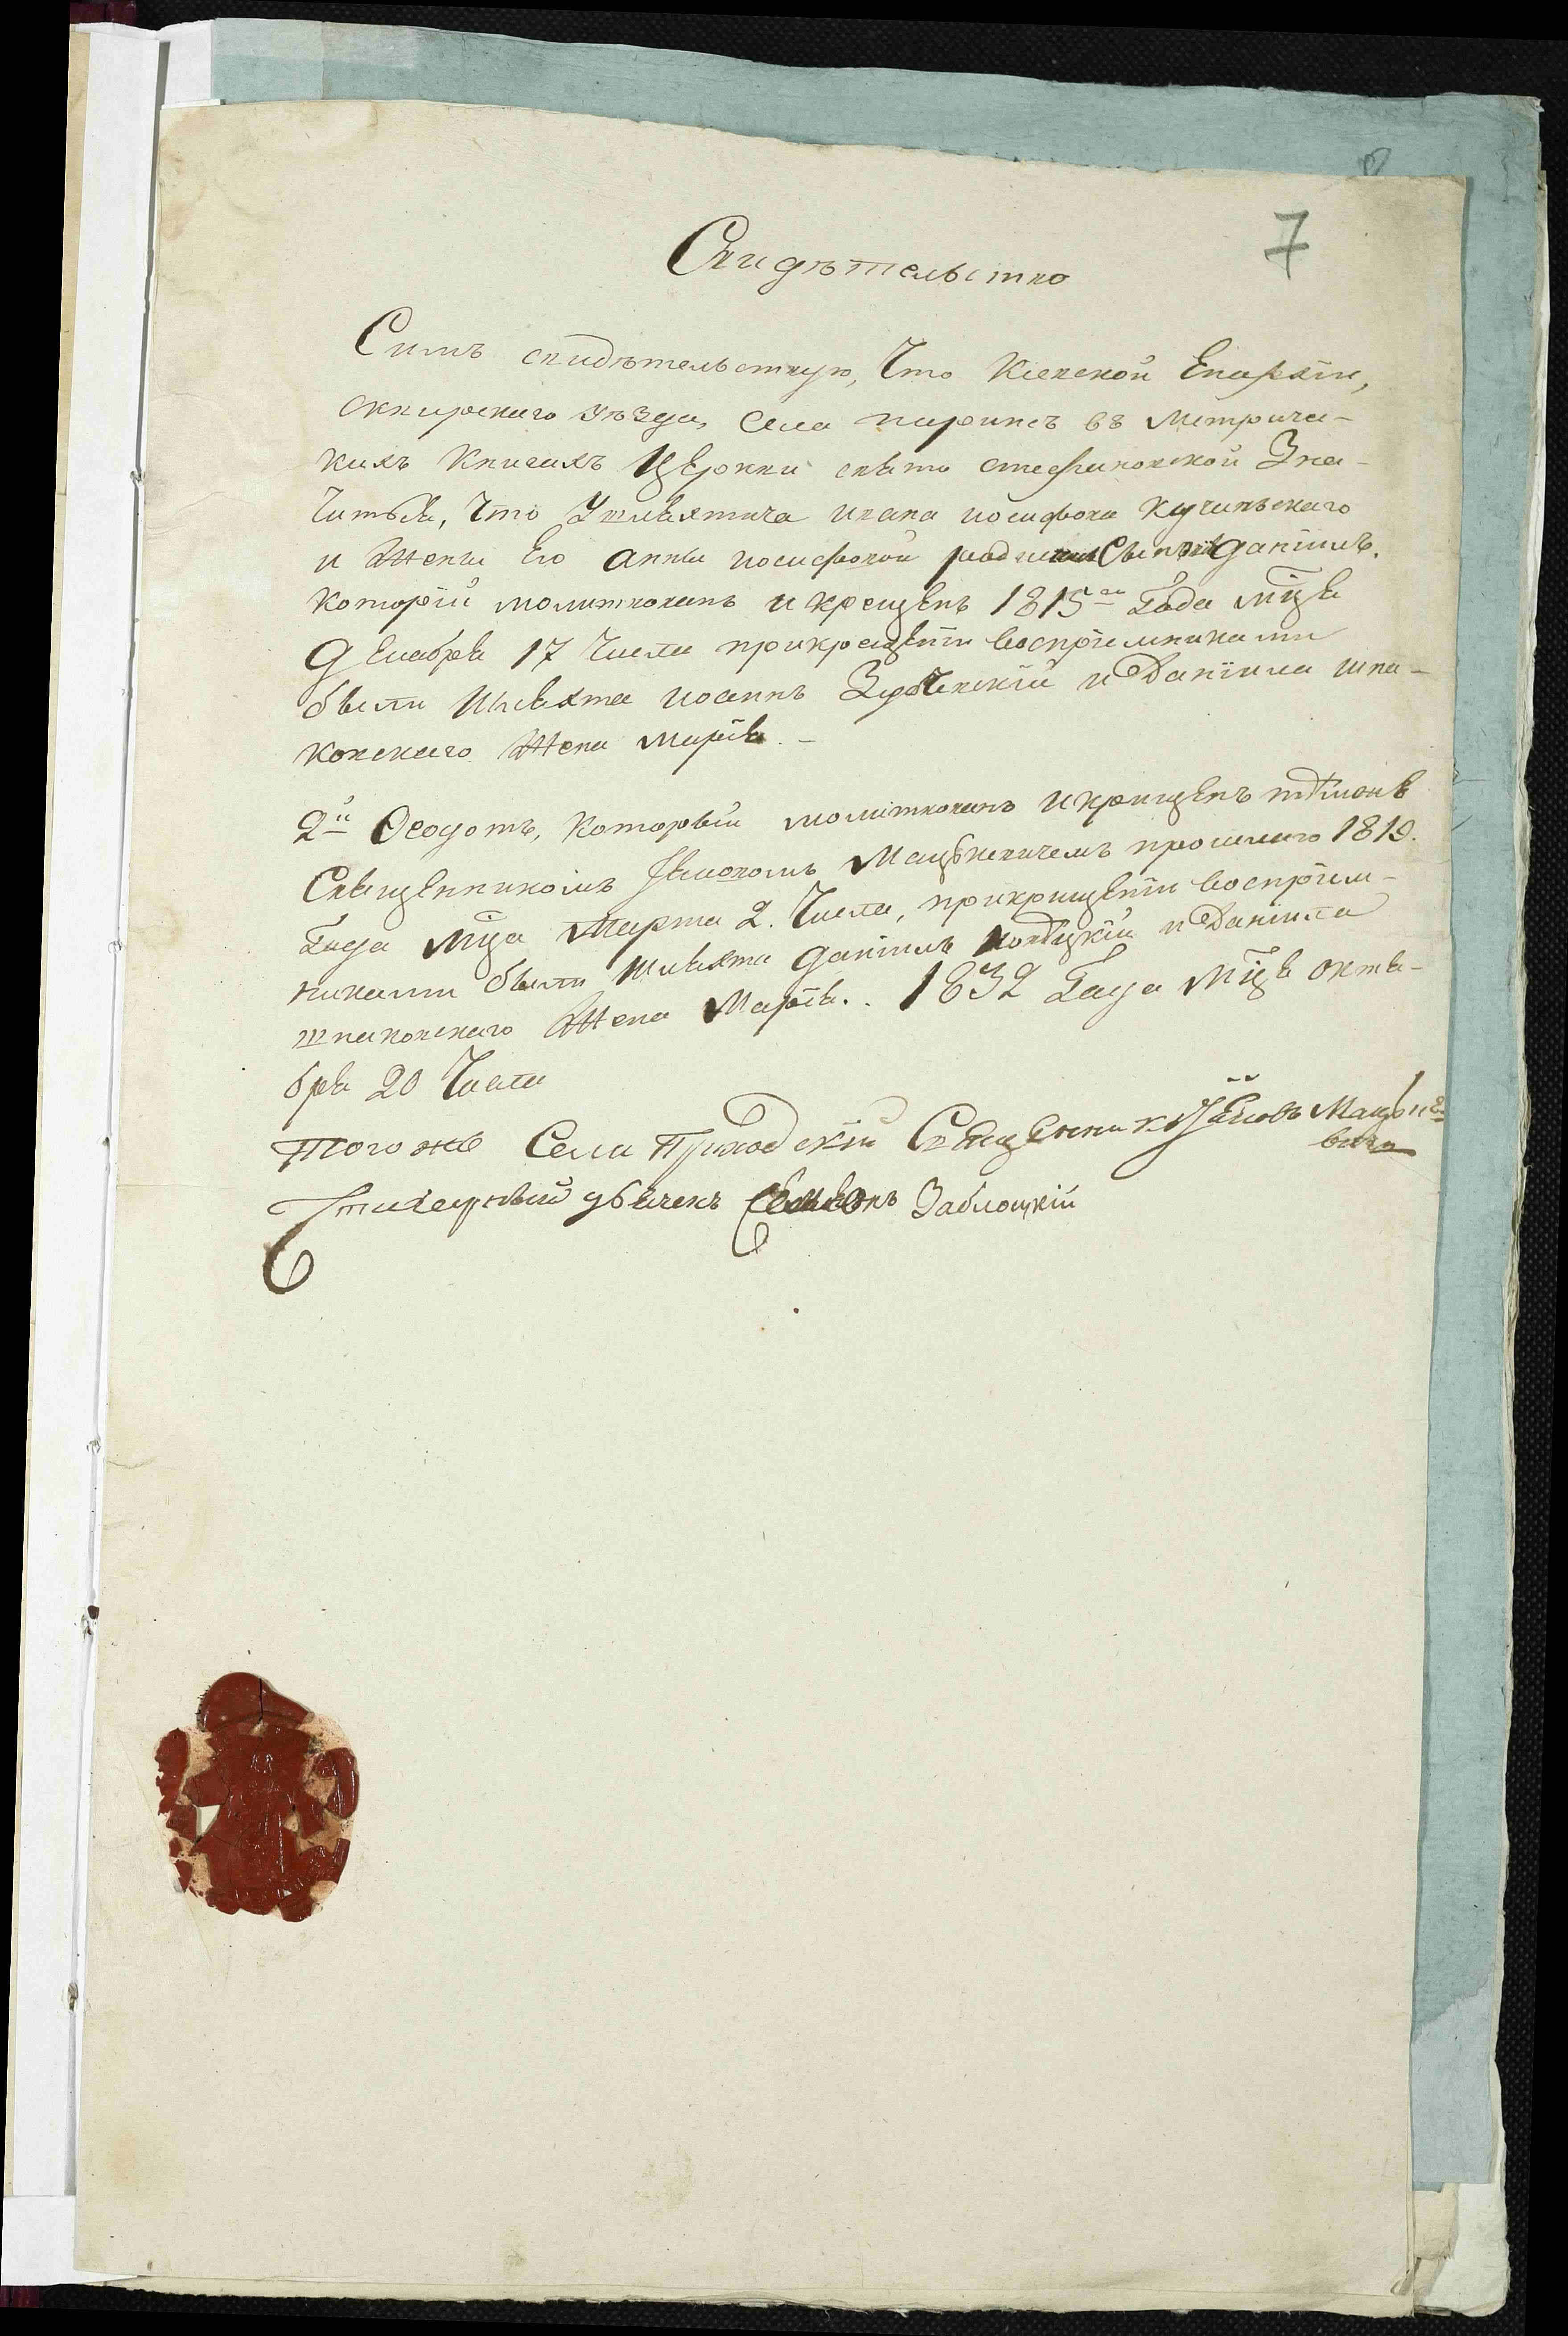 7
Свидѣтельство
Симъ свидѣтельствую, Что Кіевской Епархіи,
сквирского уѣзда, Села паринсъ въ метриче-
кихъ Книгахъ Церкви свято стефановской Зна-
Читься, Что У шляхтича ивана иосифова Кучинскаго
и Жены Его анны иосифовой Сынъ даніилъ.
Которій молитвованъ и крещенъ 1815го Года мца
декабря 17 Числа при крещеніи воспріемниками
были Шляхта иоаннъ и Даніила шпа-
ковскаго Жена марія. –
2й Ѳеодотъ, Который молитвованъ и крещенъ тѣмже
Священникомъ Яковомъ Мацкевичемъ прошлого 1819.
Года мца Марта 2. Числа, при крещеніи воспріем-
никами были Шляхта даніилъ и Даніила
шпаковскаго Жена Марія. . 1832 Года мца октя-
бря 20 Числа
того же Села Приходскій Священникъ Іаковъ Мацке-
вичъ
Стихарный дьячекъ Симеонъ Заблоцкій